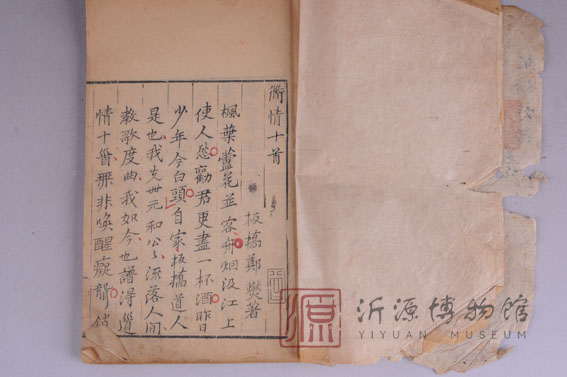 衜情十首
板橋鄭燮著
楓葉蘆花並客舟烟波江上
使人愁勸君更盡一杯酒昨日
少年今白頭自家板橋道人
是也我先世元和公々流落人間
教歌度曲我如今也譜得衜
情十首無非喚醒癡聾銷
源
沂源博物館
YIYUAN MUSEUM